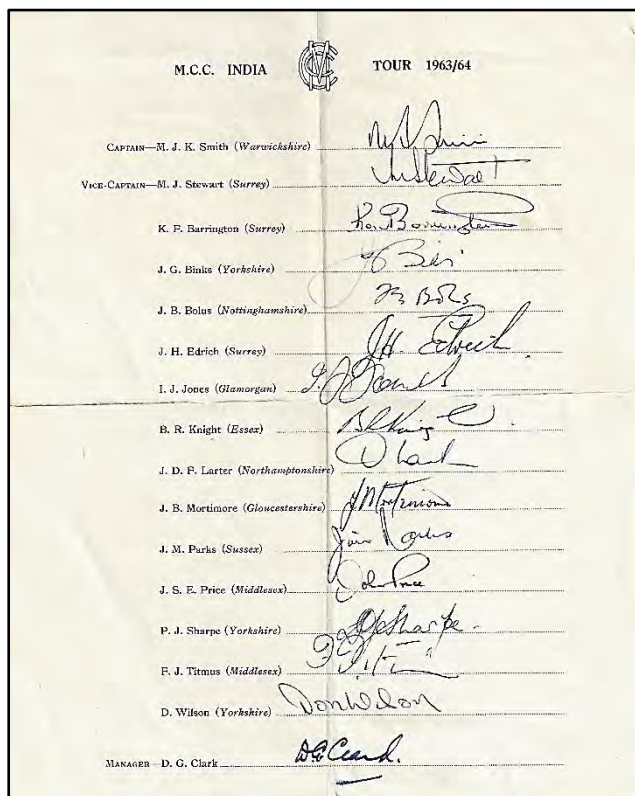 M.C.C. INDIA MCC TOUR 1963/64
CAPTAIN—M. J. K. Smith (Warwickshire)
VICE-CAPTAIN—M. J. Stewart (Surrey) MStewart
K. F. Barrington (Surrey) Ken Barrington
J. G. Binks (Yorkshire)
J. B. Bolus (Nottinghamshire) JB Bolus
J. H. Edrich (Surrey) JH. Edrich
I. J. Jones (Glamorgan) I. J Jones
B. R. Knight (Essex) BRKnight
J. D. F. Larter (Northamptonshire)
J. B. Mortimore (Gloucestershire) JMortimore
J. M. Parks (Sussex) Jim Parks
J. S. E. Price (Middlesex) John Price
P. J. Sharpe (Yorkshire) PJSharpe
F. J. Titmus (Middlesex)
D. Wilson (Yorkshire) Don Wilson
MANAGER—D. G. Clark DG Clark.